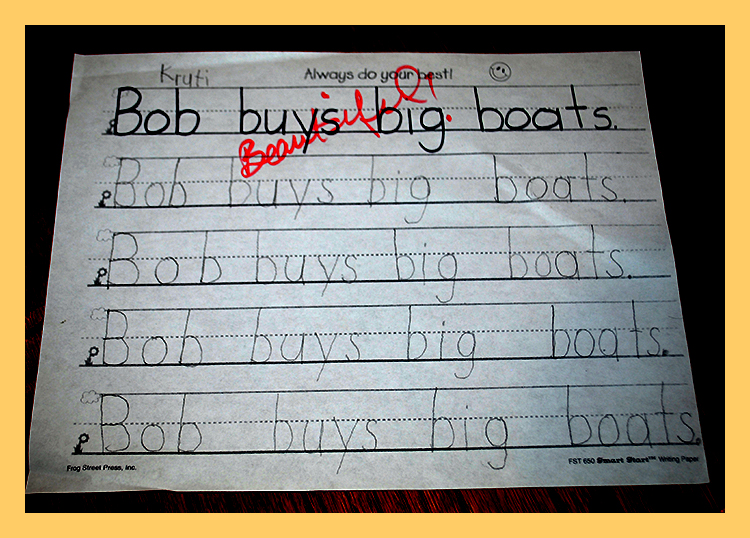 Kruti Always do your best!
Bob buys big boats.
Beautiful!
Bob buys big boats.
Bob buys big boats.
Bob buys big boats.
Bob buys big boats.
Frog Street Press, Inc. FST 650 Smart Start™ Writing Paper